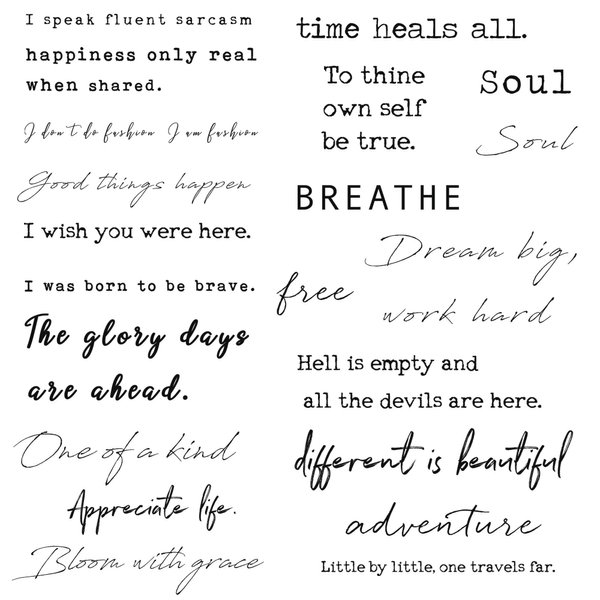 I speak fluent sarcasm
happiness only real
when shared.
I don't do fashion I am fashion
Good things happen
I wish you were here.
I was born to be brave.
The glory days
are ahead.
One of a kind
Appreciate life.
Bloom with grace
time heals all.
To thine
own self
be true.
Soul
Soul
BREATHE
Dream big,
free
work hard
Hell is empty and
all the devils are here.
different is beautiful
adventure
Little by little, one travels far.